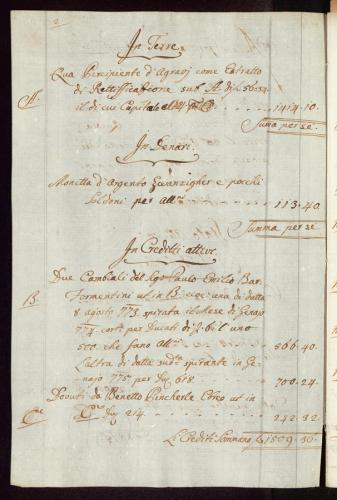 2
In Terre
Qua Percipiente d'Agravj come Estratto
A. di Rettifficazione sub A. di f. 56:34
il di cui Capitale 1414.10.
Summa per se.
In Denari.
Monetta d'Argento Zwanzigher e pocchi
Soldoni per all. 113.40.
Summa per se
In Creditti attivi
Due Cambiali del Sgr Paulo Emilio Bar.
B. Formentini ut in B. cioè una di datta
8 agosto 773 spirata il Mese di Genajo
774 corti per Ducati
500. che fano 566.40.
L'altra di datta sud.ta spirante in Ge-
najo 775 per 618. 700.24.
Dovuti da Benetto Pincherle Ebreo ut in
C. C. 214. 242.32.
Li Crediti Sommano 1509.36.